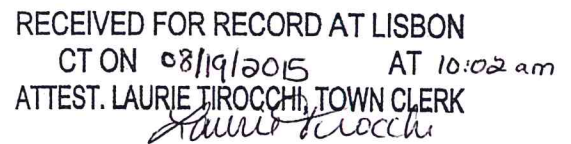 RECEIVED FOR RECORD AT LISBON
CT ON 08/19/2015 AT 10:02 am
ATTEST. LAURIE TIROCCHI, TOWN CLERK
Laurie Tirocchi